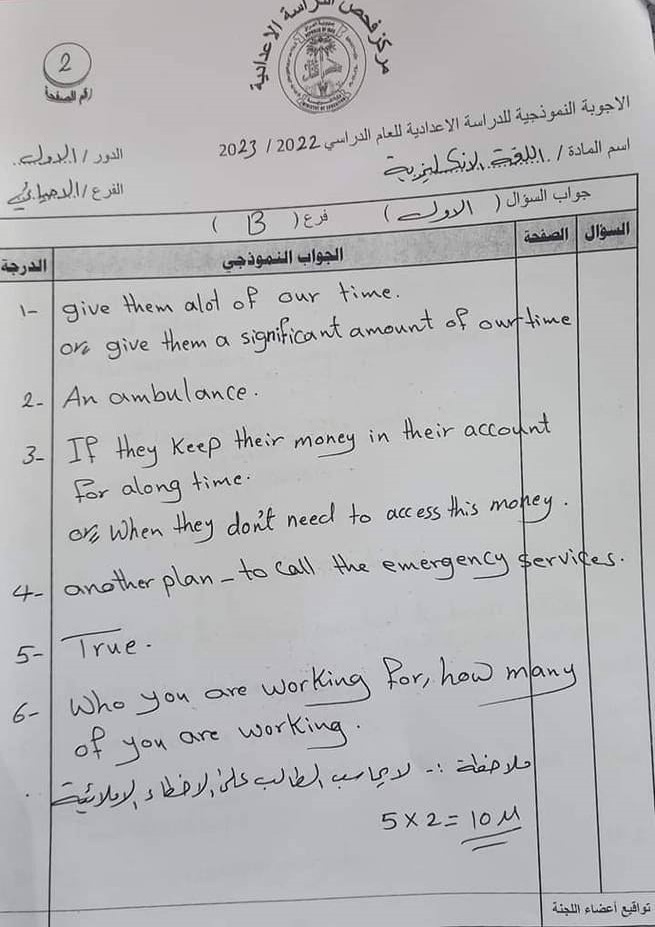 مركز فحص الدراسة الاعدادية
2
رقم الصفحة
الاجوبة النموذجية للدراسة الاعدادية للعام الدراسي 2022 / 2023
الدور / الاول.
اسم المادة / اللغة الانكليزية
الفرع / الاحيائي
جواب السؤال ( الاول ) فرع ( B )
السؤال الصفحة الجواب النموذجي الدرجة
1- give them alot of our time.
or, give them a significant amount of our time
2- An ambulance.
3- If they keep their money in their account
for along time.
or, When they don't need to access this money.
4- another plan - to call the emergency services.
5- True.
6- Who you are working for, how many
of you are working.
ملاحظة :- لا يحاسب الطالب على الاخطاء الاملائية
5 X 2 = 10 M
تواقيع أعضاء اللجنة